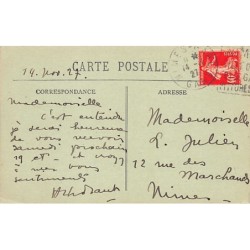 CARTE POSTALE
CORRESPONDANCE
19 Nov. 27.
Mademoiselle
C'est entendu
je serai heureuse
de vous recevoir
samedi prochain
19 et
à mes bons
sentiments
Mademoiselle
L. Julien
12 rue des
Marchands
Nimes